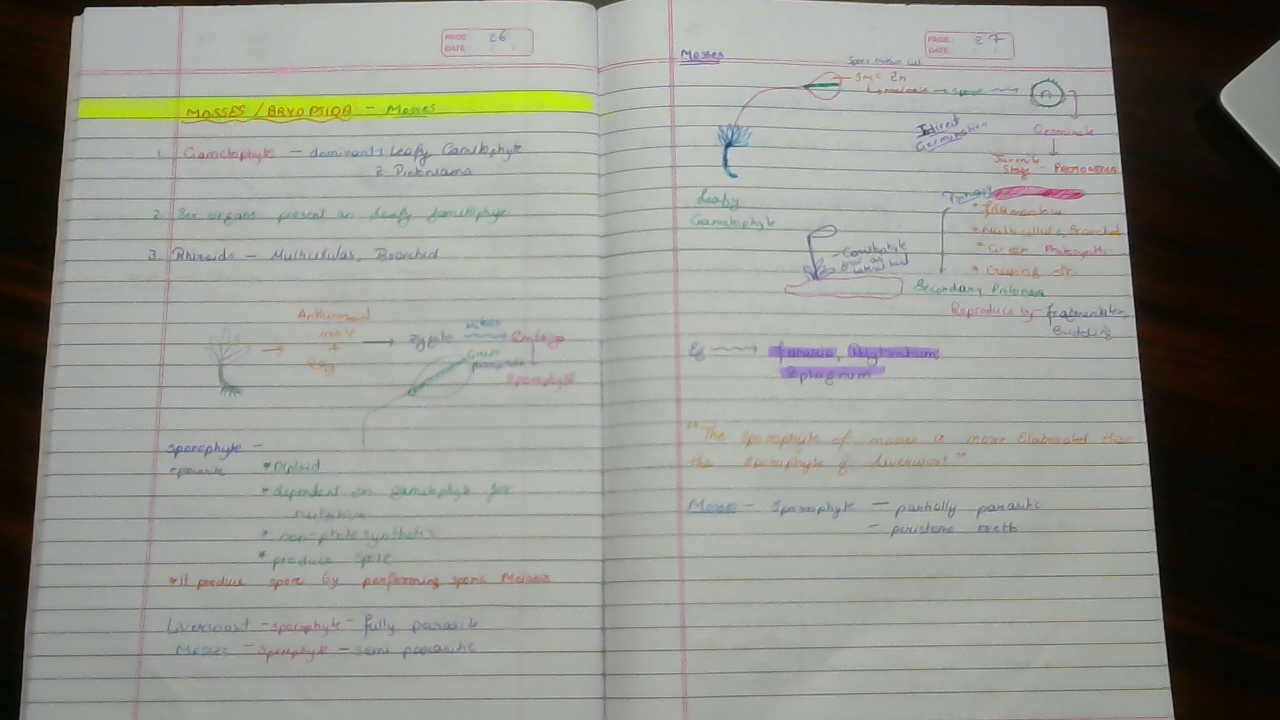 PAGE 26
DATE
MOSSES / BRYOPSIDA - Mosses
1. Gametophyte - dominant 1. Leafy Gametophyte
2. Protonema
2. Sex organs present on leafy gametophyte
3. Rhizoids - Multicellular, Branched
Antherozoid
+
Egg
Zygote
Embryo
Sporophyte
Sporophyte -
* Diploid
* dependent on gametophyte for
nutrition
* non-photosynthetic
* produce spore
* It produce spore by performing sporic Meiosis
Liverwort - sporophyte - fully parasite
Mosses - sporophyte - semi parasitic
PAGE 27
DATE
Mosses
Spore mother cell
SMC 2n
spore
n
Indirect
Germination
Germinate
Juvenile
Stage - Protonema
Leafy
Gametophyte
* filamentous
* Green
Gametophyte
lateral bud
Secondary Protonema
Reproduce by fragmentation,
Budding
Eg Funaria, Polytrichum
Sphagnum
"The Sporophyte of mosses is more Elaborated than
the Sporophyte of liverwort"
Mosses - Sporophyte - partially parasitic
- peristome teeth